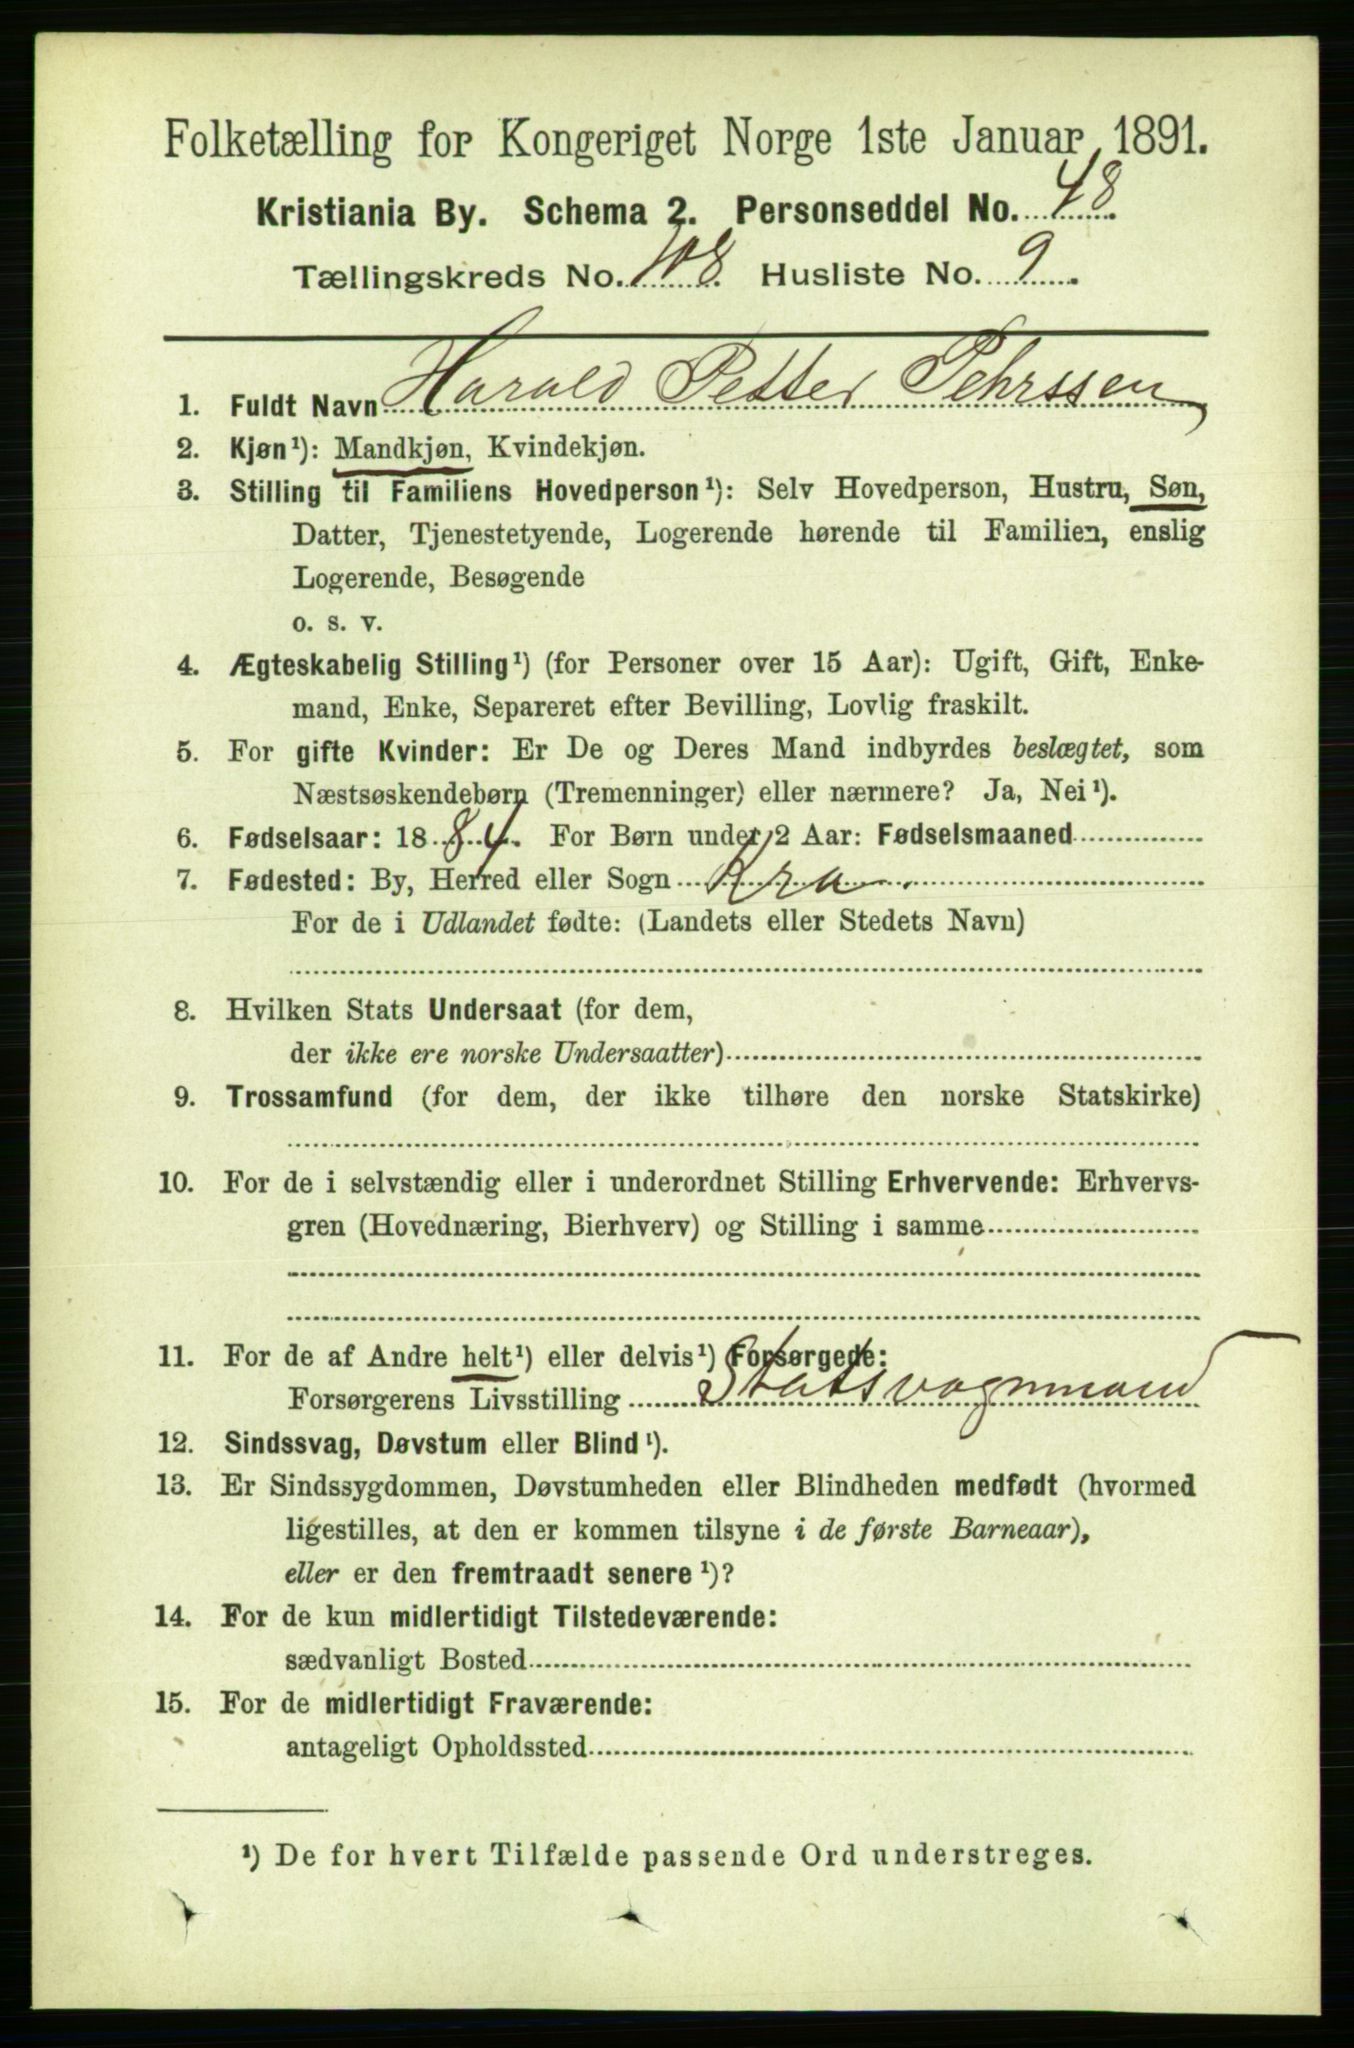 Folketælling for Kongeriget Norge 1ste Januar 1891.
Kristiania By. Schema 2. Personseddel No. 48
Tællingskreds No. 108 Husliste No. 9
1. Fuldt Navn Harald Petter Pehrssen
2. Kjøn¹): Mandkjøn, Kvindekjøn.
3. Stilling til Familiens Hovedperson¹): Selv Hovedperson, Hustru, Søn,
Datter, Tjenestetyende, Logerende hørende til Familien, enslig
Logerende, Besøgende
o. s. v.
4. Ægteskabelig Stilling¹) (for Personer over 15 Aar): Ugift, Gift, Enke-
mand, Enke, Separeret efter Bevilling, Lovlig fraskilt.
5. For gifte Kvinder: Er De og Deres Mand indbyrdes beslægtet, som
Næstsøskendebørn (Tremenninger) eller nærmere? Ja, Nei¹).
6. Fødselsaar: 1884. For Børn under 2 Aar: Fødselsmaaned
7. Fødested: By, Herred eller Sogn Kra.
For de i Udlandet fødte: (Landets eller Stedets Navn)
8. Hvilken Stats Undersaat (for dem,
der ikke ere norske Undersaatter)
9. Trossamfund (for dem, der ikke tilhøre den norske Statskirke)
10. For de i selvstændig eller i underordnet Stilling Erhvervende: Erhvervs-
gren (Hovednæring, Bierhverv) og Stilling i samme
11. For de af Andre helt¹) eller delvis¹) Forsørgede:
Forsørgerens Livsstilling Statsvognmand
12. Sindssvag, Døvstum eller Blind¹).
13. Er Sindssygdommen, Døvstumheden eller Blindheden medfødt (hvormed
ligestilles, at den er kommen tilsyne i de første Barneaar),
eller er den fremtraadt senere¹)?
14. For de kun midlertidigt Tilstedeværende:
sædvanligt Bosted
15. For de midlertidigt Fraværende:
antageligt Opholdssted
¹) De for hvert Tilfælde passende Ord understreges.